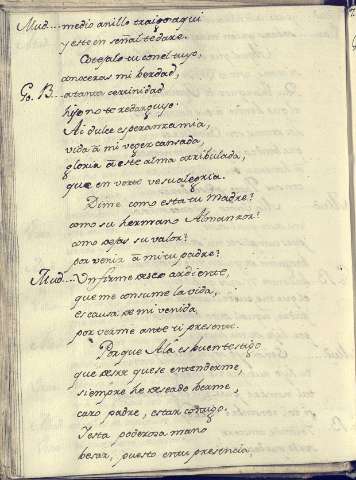 Mud.... medio anillo traigo aqui
y este en señal te dare.
Cotejalo tu con el tuyo,
conoceras mi berdad,
Go. B... a tanta serinidad
hijo no te redarguyo.
Ai dulce esperanza mia,
vida de mi vegez cansada,
gloria de este alma atribulada,
que en verte ve su alegria.
Dime como esta tu Madre?
como su hermano Almanzor?
como dejas su valor?
por venir a mi tu padre?
Mud.... Un firme deseo ardiente,
que me consume la vida,
es causa de mi venida,
por verme ante ti presente.
Porque Alá es buen testigo
que desde que se entenderme,
siempre he deseado berme,
caro padre, estar contigo.
Y esta poderosa mano
besar, puesto en tu presencia